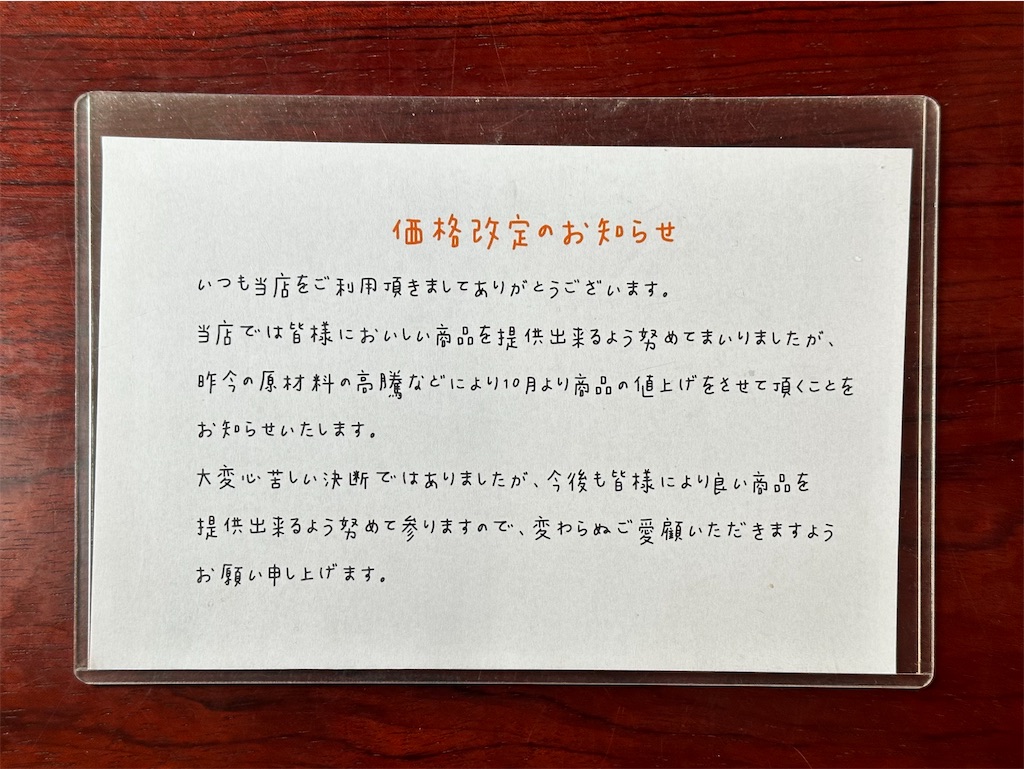 価格改定のお知らせ
いつも当店をご利用頂きましてありがとうございます。
当店では皆様においしい商品を提供出来るよう努めてまいりましたが、
昨今の原材料の高騰などにより10月より商品の値上げをさせて頂くことを
お知らせいたします。
大変心苦しい決断ではありましたが、今後も皆様により良い商品を
提供出来るよう努めて参りますので、変わらぬご愛顧いただきますよう
お願い申し上げます。